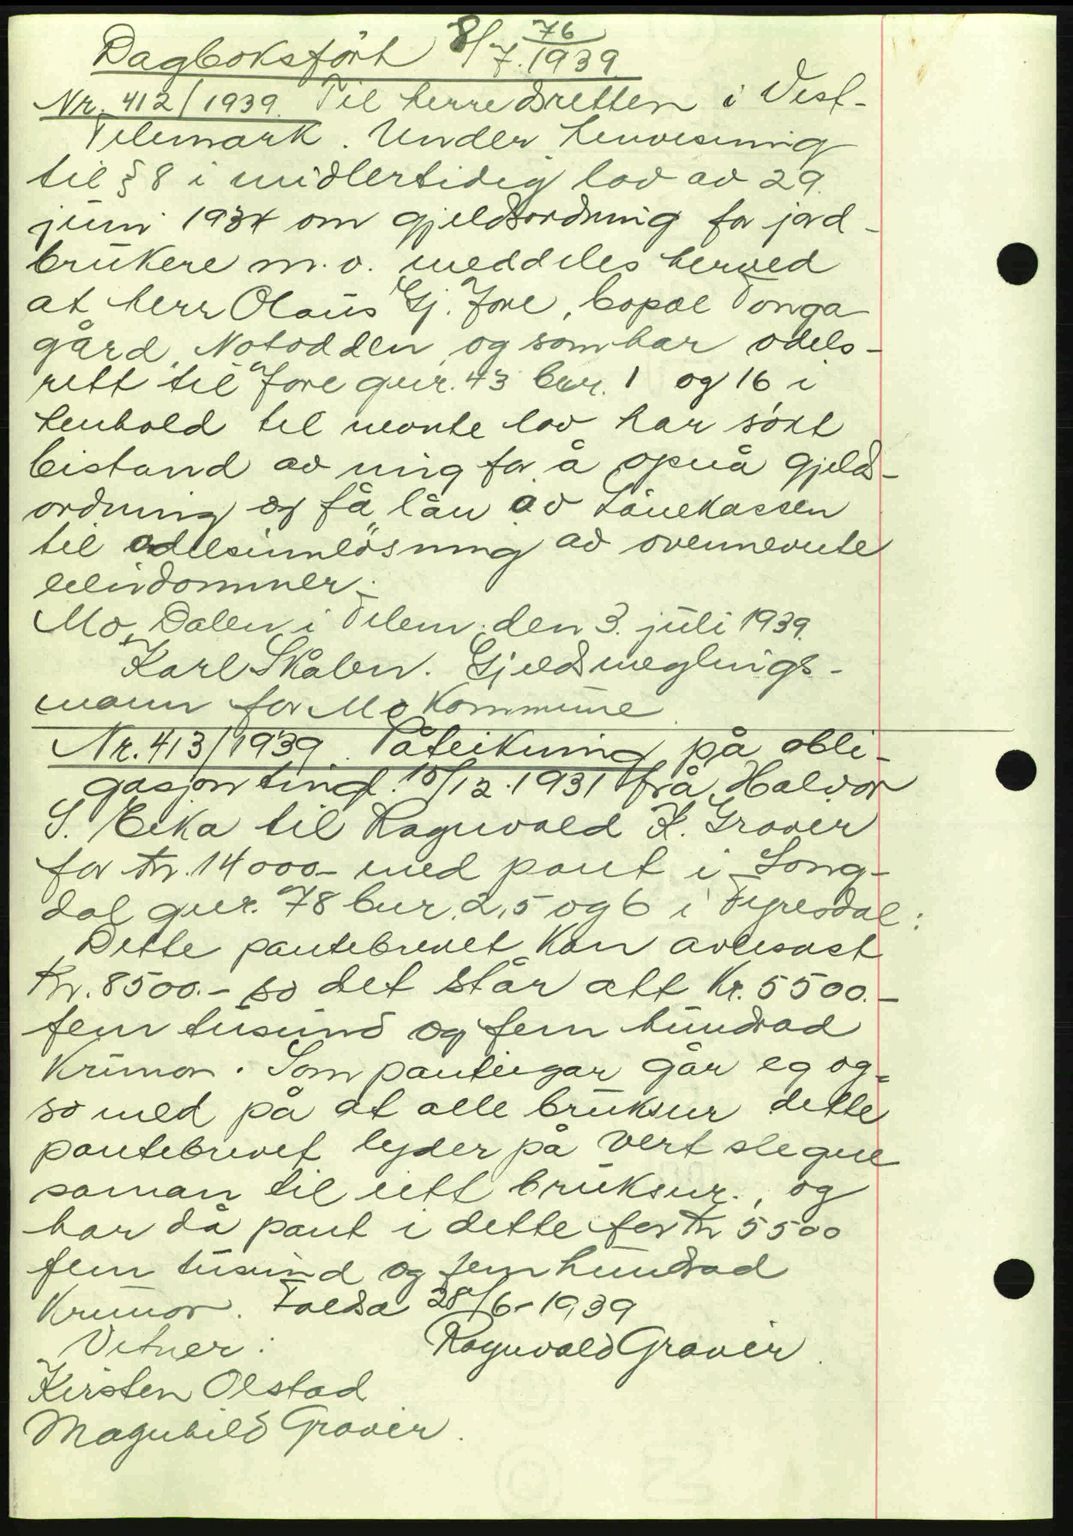 76
Dagboksført 8/7. 1939
Nr. 412/1939. Til herredsretten i Vest-
Telemark. Under henvisning
til § 8 i midlertidig lov av 29.
juni 1934 om gjeldsordning for jord-
brukere m. v. meddeles herved
at herr Olaus Gj. Jore, bopæl Tonga
gård, Notodden, og som har odels-
rett til Jore gnr. 43 bnr. 1 og 16, i
henhold til nevnte lov har søkt
bistand av mig for å opnå gjelds-
ordning og få lån av Lånekassen
til odelsinnløsning av ovennevnte
eiendommer.
Mo, Dalen i Telem. den 3. juli 1939.
Karl Skålen. Gjeldsmeglings-
mann for Mo Kommune.
Nr. 413/1939. Påteikning på obli-
gasjon tingl. 15/12. 1931 frå Halvor
S. Eika til Ragnvald K. Graver
for kr. 14000.- med pant i Song-
dal gnr. 78 bnr. 2, 5 og 6 i Fyresdal:
Dette pantebrevet kan avlesast
kr. 8500.- so det står att kr. 5500.-
fem tusund og fem hundrad
krunor. Som panteigar går eg og-
so med på at alle bruksnr dette
pantebrevet lyder på vert slegne
saman til eitt bruksnr., og
har då pant i dette for kr 5500
fem tusund og fem hundrad
krunor. 28/6-1939
Vitner: Ragnvald Graver.
Kirsten Olstad
Magnhild Graver.